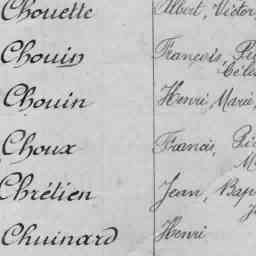 Chouette Albert, Victor,
Chouin François,
Chouin Henri, Marie,
Choux Francis,
Chrétien Jean,
Chuinard Henri